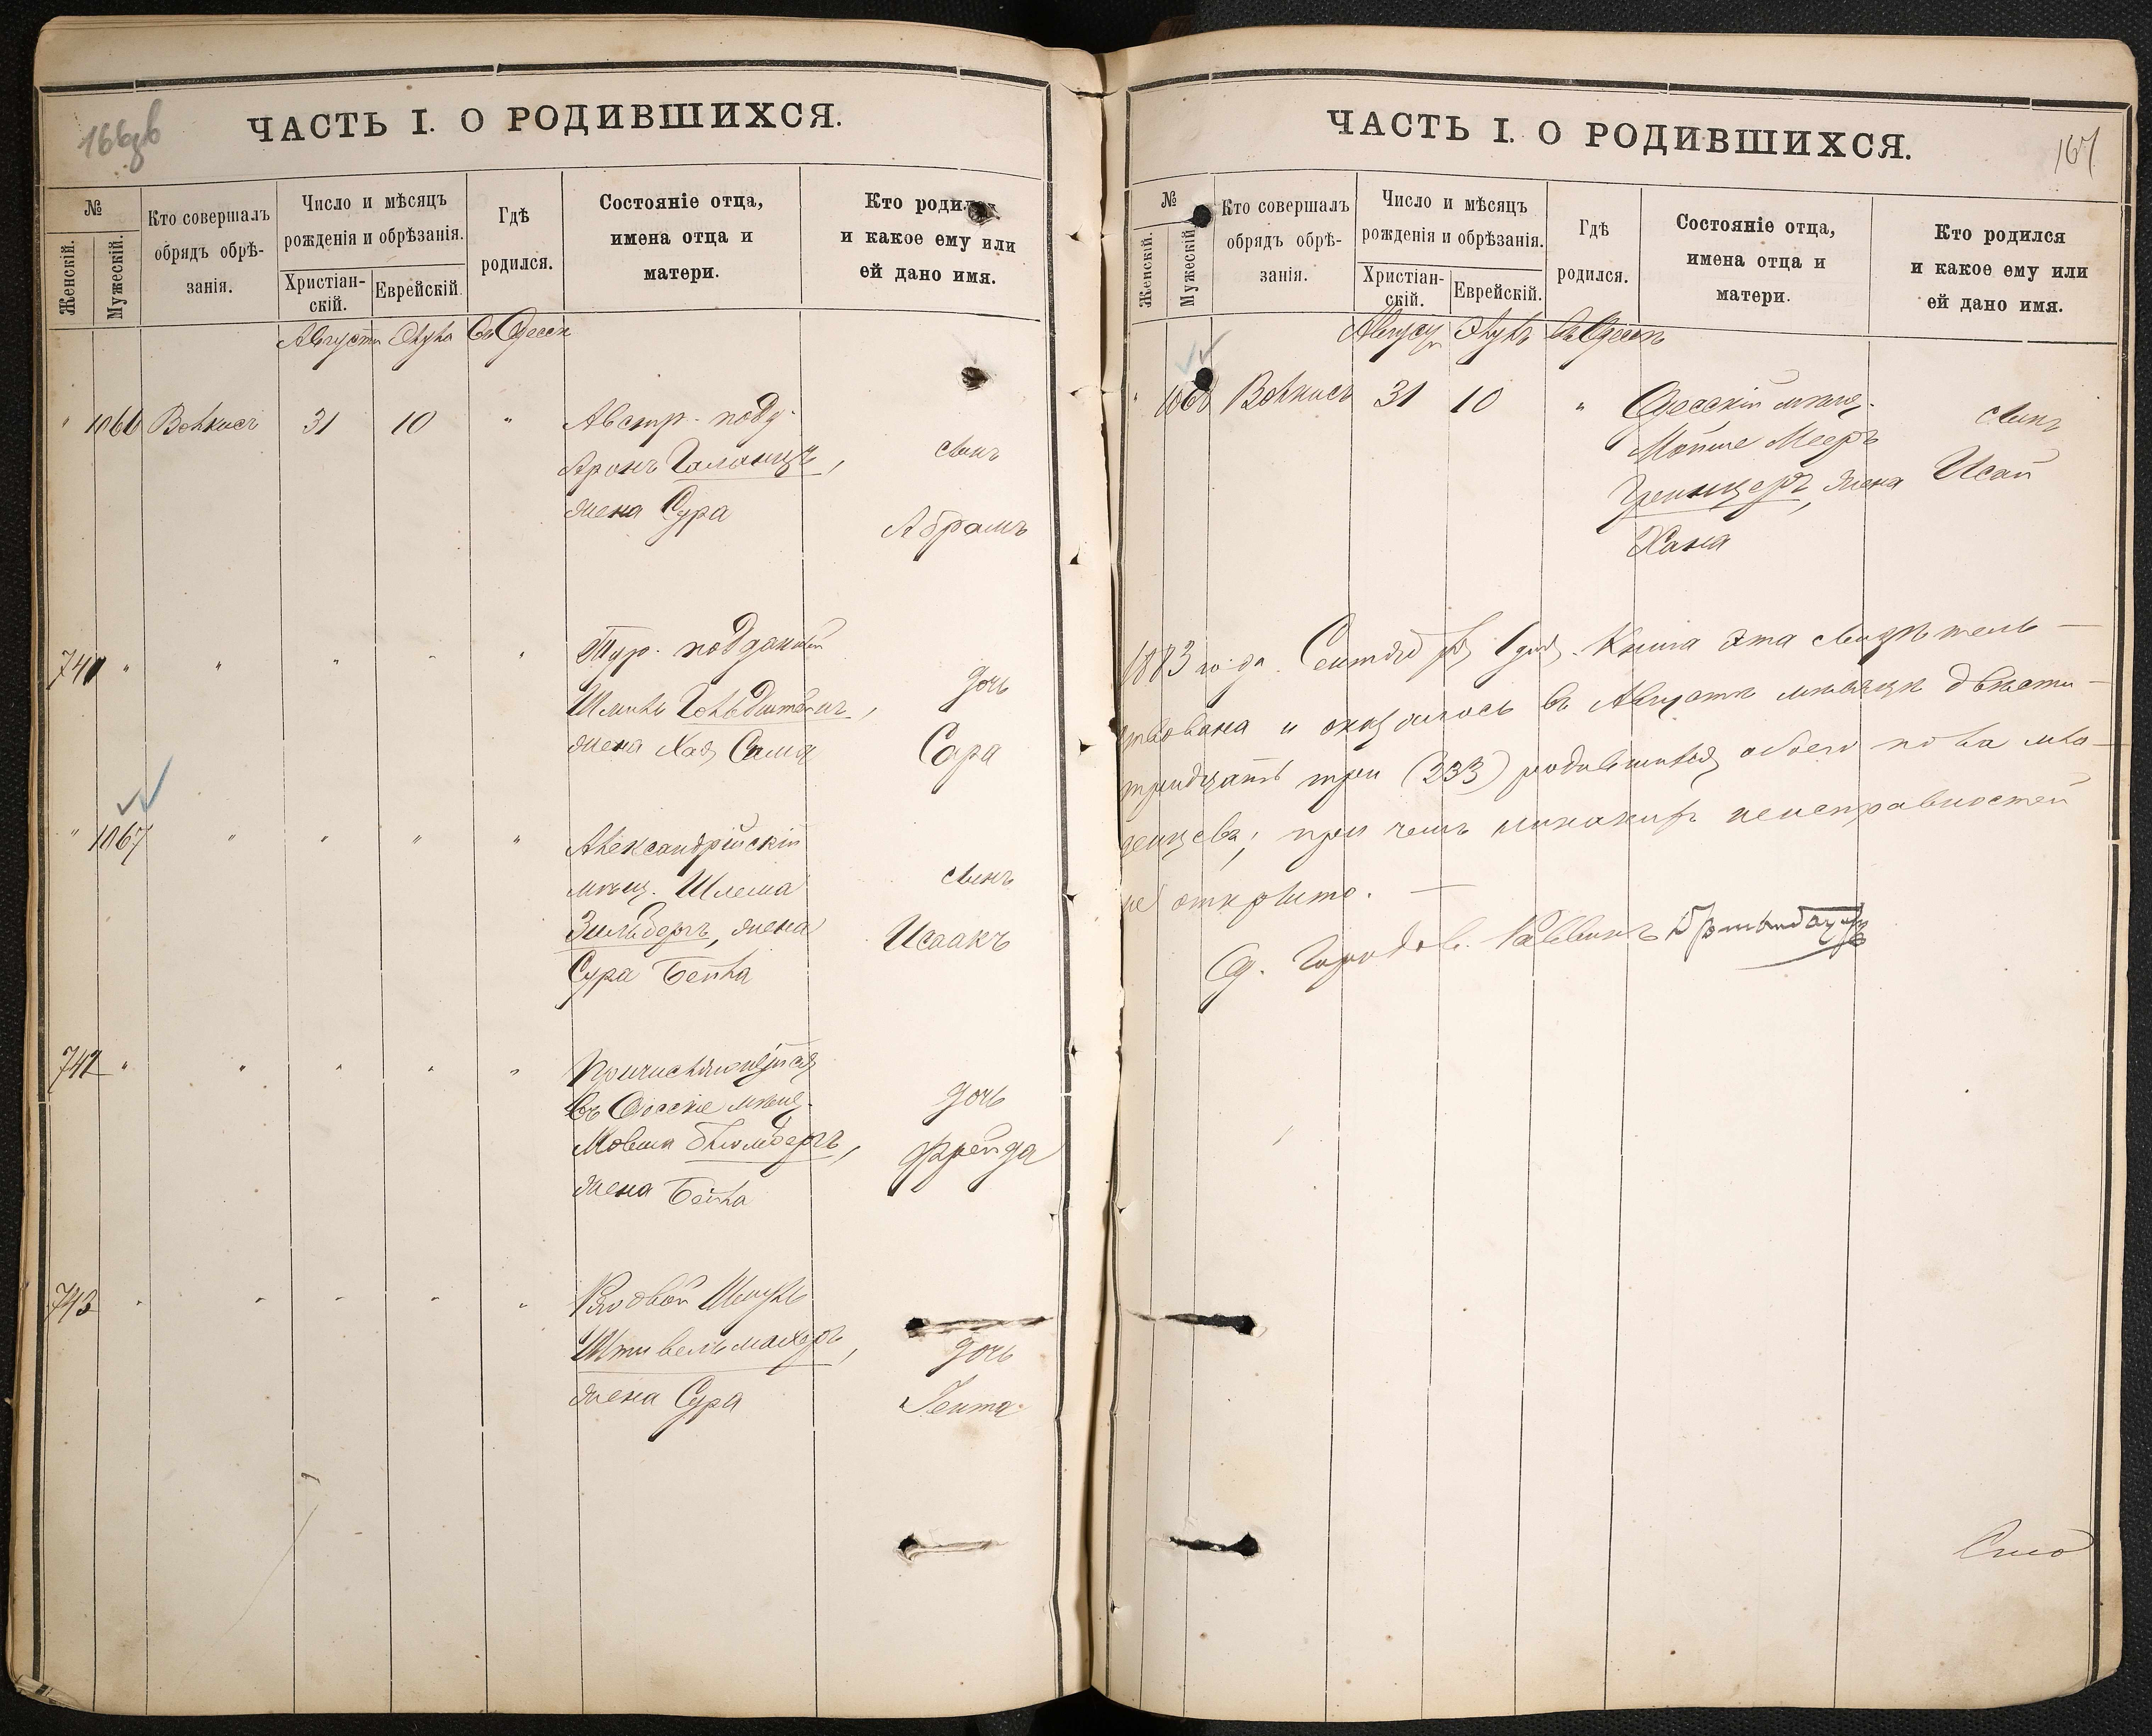 166об
ЧАСТЬ I. О РОДИВШИХСЯ.
№
Женскій.
Мужескій.
Кто совершалъ
обрядъ обрѣ-
занія.
Число и мѣсяцъ
рожденія и обрѣзанія.
Христіан-
скій.
Еврейскій.
Гдѣ
родился.
Состояніе отца,
имена отца и
матери.
Кто родился
и какое ему или
ей дано имя.
Августа Элула Въ Одессѣ
" 1066 31 10 " Австр. подд.
Аронъ
жена Сура
сынъ
Абрамъ
741 " " " " " Тур. подданный
Шмиль Гольдштейнъ,
жена Хая
дочь
Сара
" 1067 " " " " Александрійскій
мѣщ. Шлема
Зильберъ, жена
Сура Бейла
сынъ
Исаакъ
742 " " " " " Причисляющійся
въ Одесскіе мѣщ.
Мовша Блюмберъ,
жена Бейла
дочь
Фрейда
743 " " " " " Рядовой
Штивельмахеръ,
жена Сура
дочь
Гента
167
ЧАСТЬ I. О РОДИВШИХСЯ.
№
Женскій.
Мужескій.
Кто совершалъ
обрядъ обрѣ-
занія.
Число и мѣсяцъ
рожденія и обрѣзанія.
Христіан-
скій.
Еврейскій.
Гдѣ
родился.
Состояніе отца,
имена отца и
матери.
Кто родился
и какое ему или
ей дано имя.
Августа Элулъ Въ Одессѣ
" 1068 31 10 " Одесскій мѣщ.
Мошко Мееръ
жена
Хана
сынъ
Исай
1883 года Сентября 1 дня. Книга эта свидѣтель-
ствована и оказалось въ Августѣ мѣсяцѣ двѣсти
тридцать три (233) родившихся обоего пола мла-
денцевъ; при чемъ никакихъ неисправностей
не открыто. —
Од. Городов. Раввинъ